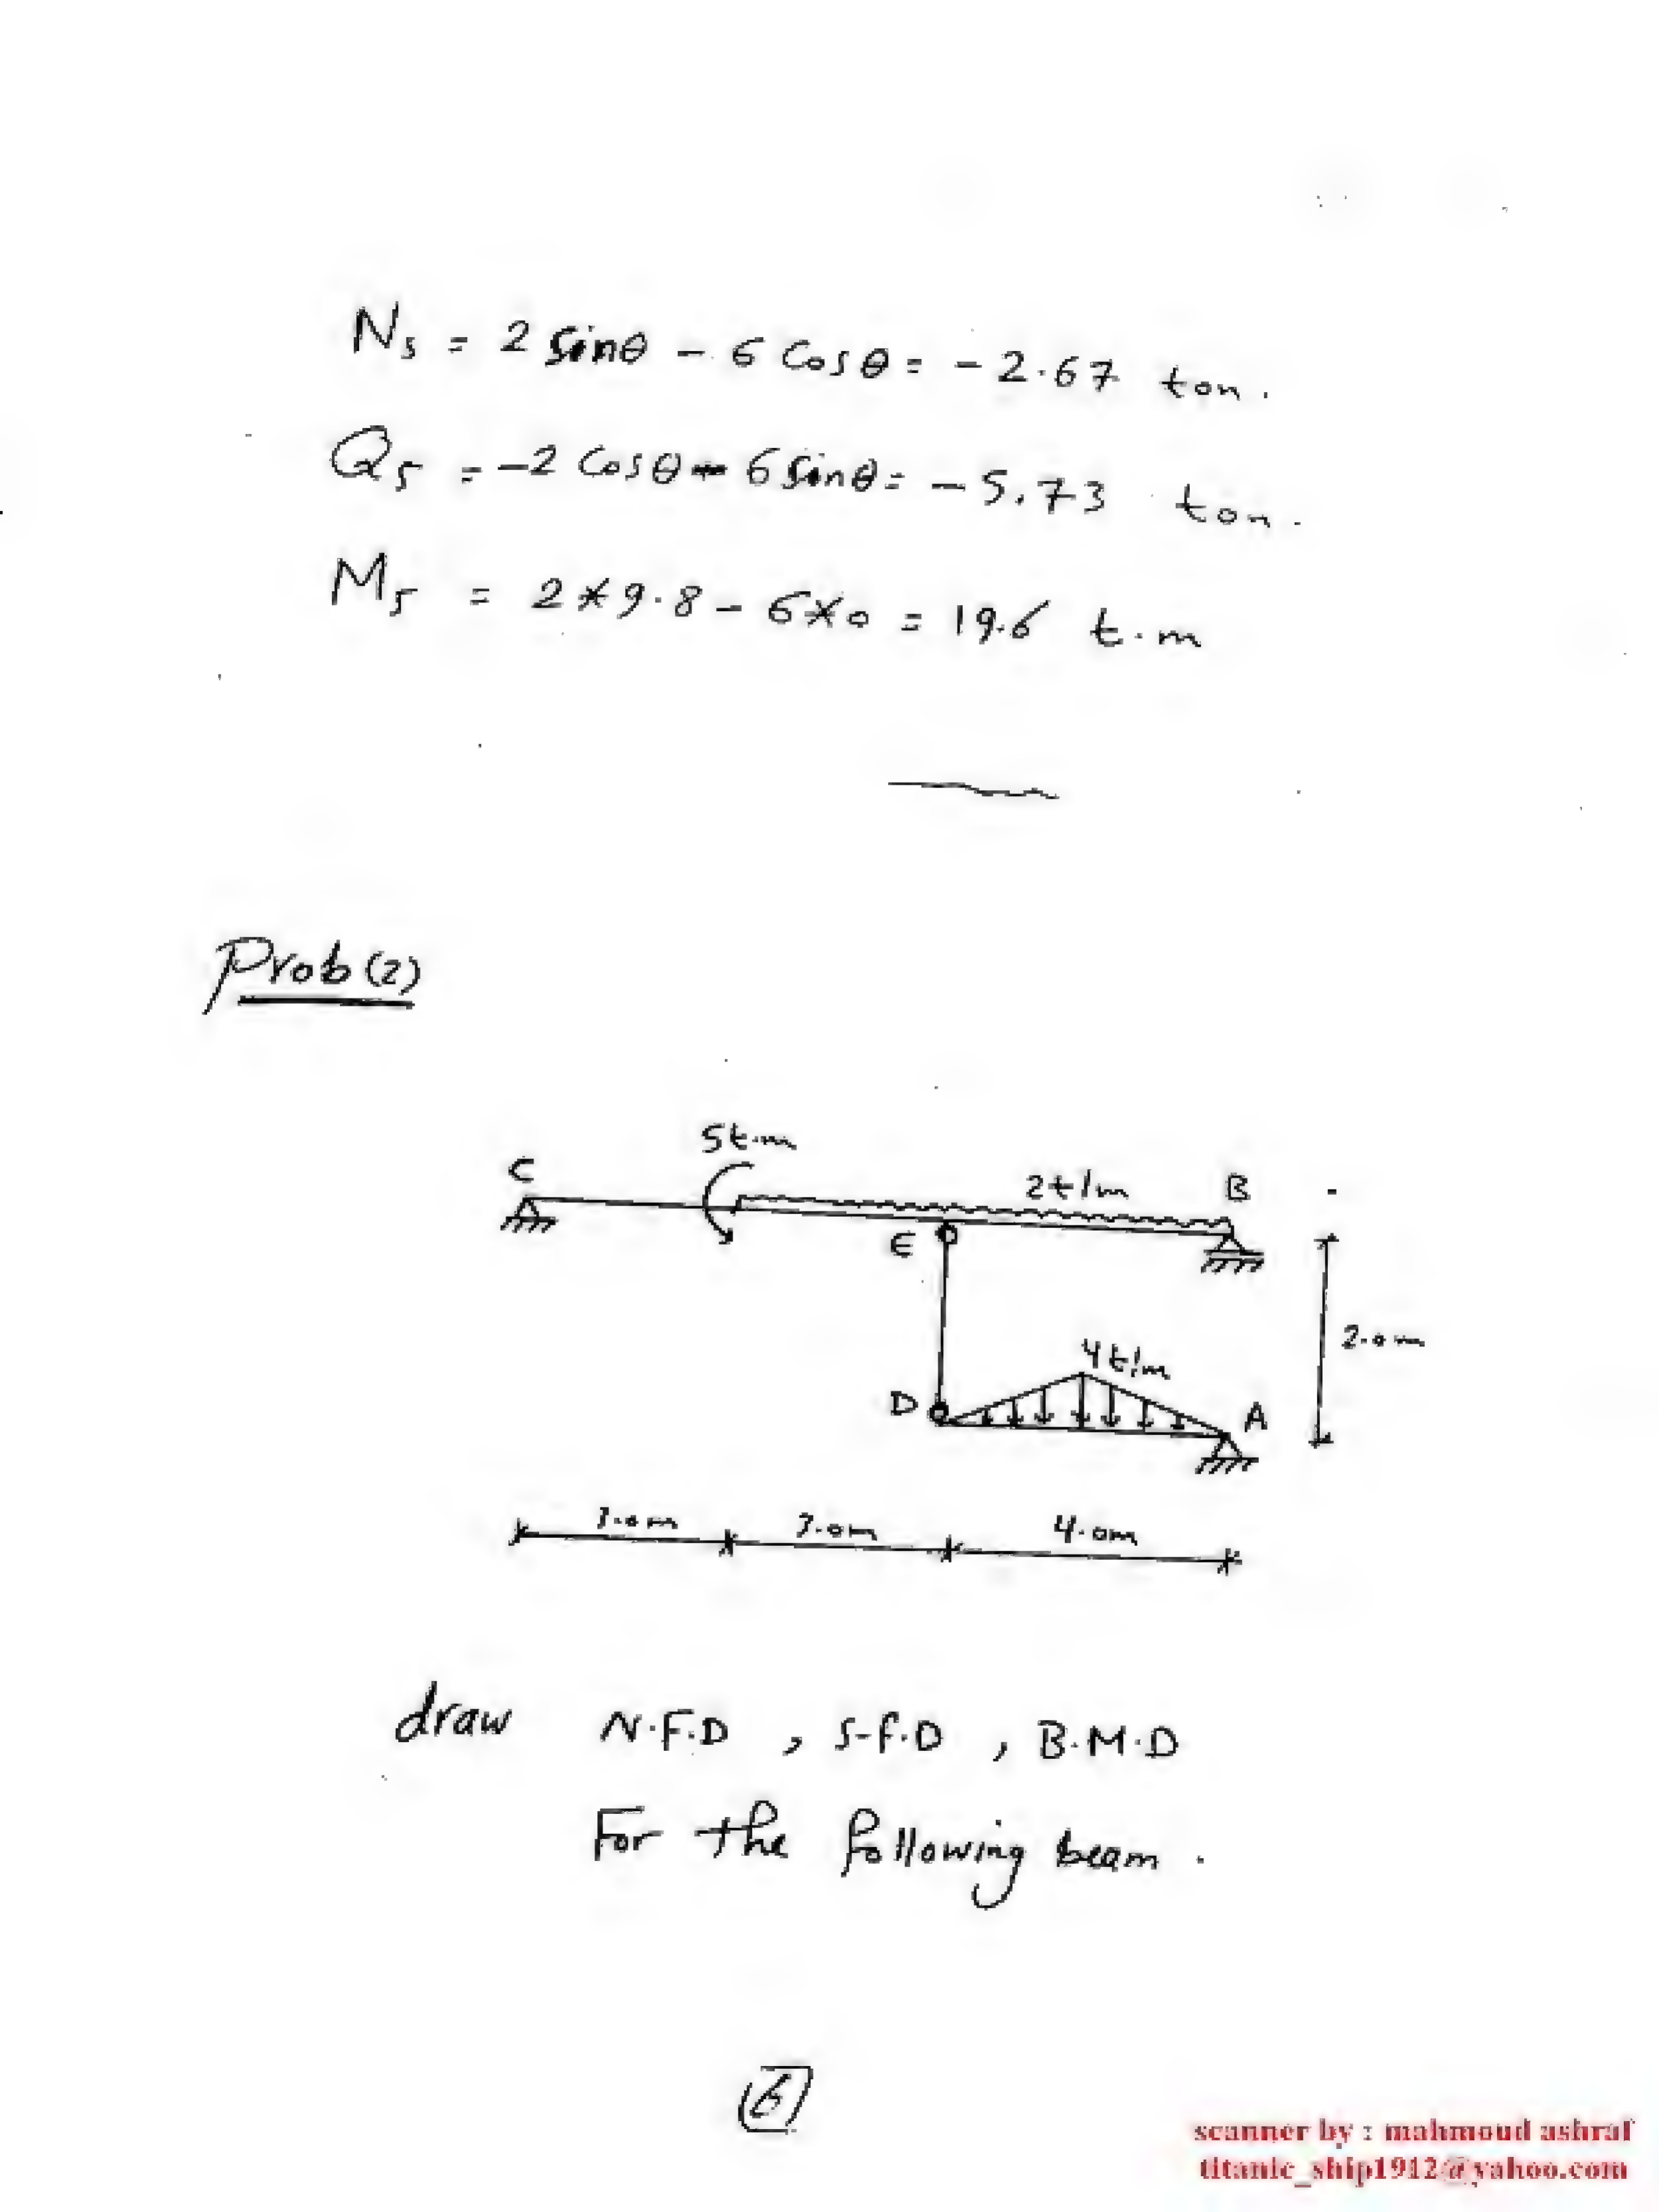 N5 = 2 sinθ - 6 cosθ = -2.67 ton.
Q5 = -2 cosθ - 6 sinθ = -5.73 ton.
M5 = 2*9.8 - 6*0 = 19.6 t.m
Prob(2)
5t.m
C
2t/m
B
E
2.0m
4t/m
D
A
3.0m
3.0m
4.0m
draw N.F.D , S.F.D , B.M.D
For the following beam .
6
scanner by : mahmoud ashraf
titanic_ship1912@yahoo.com